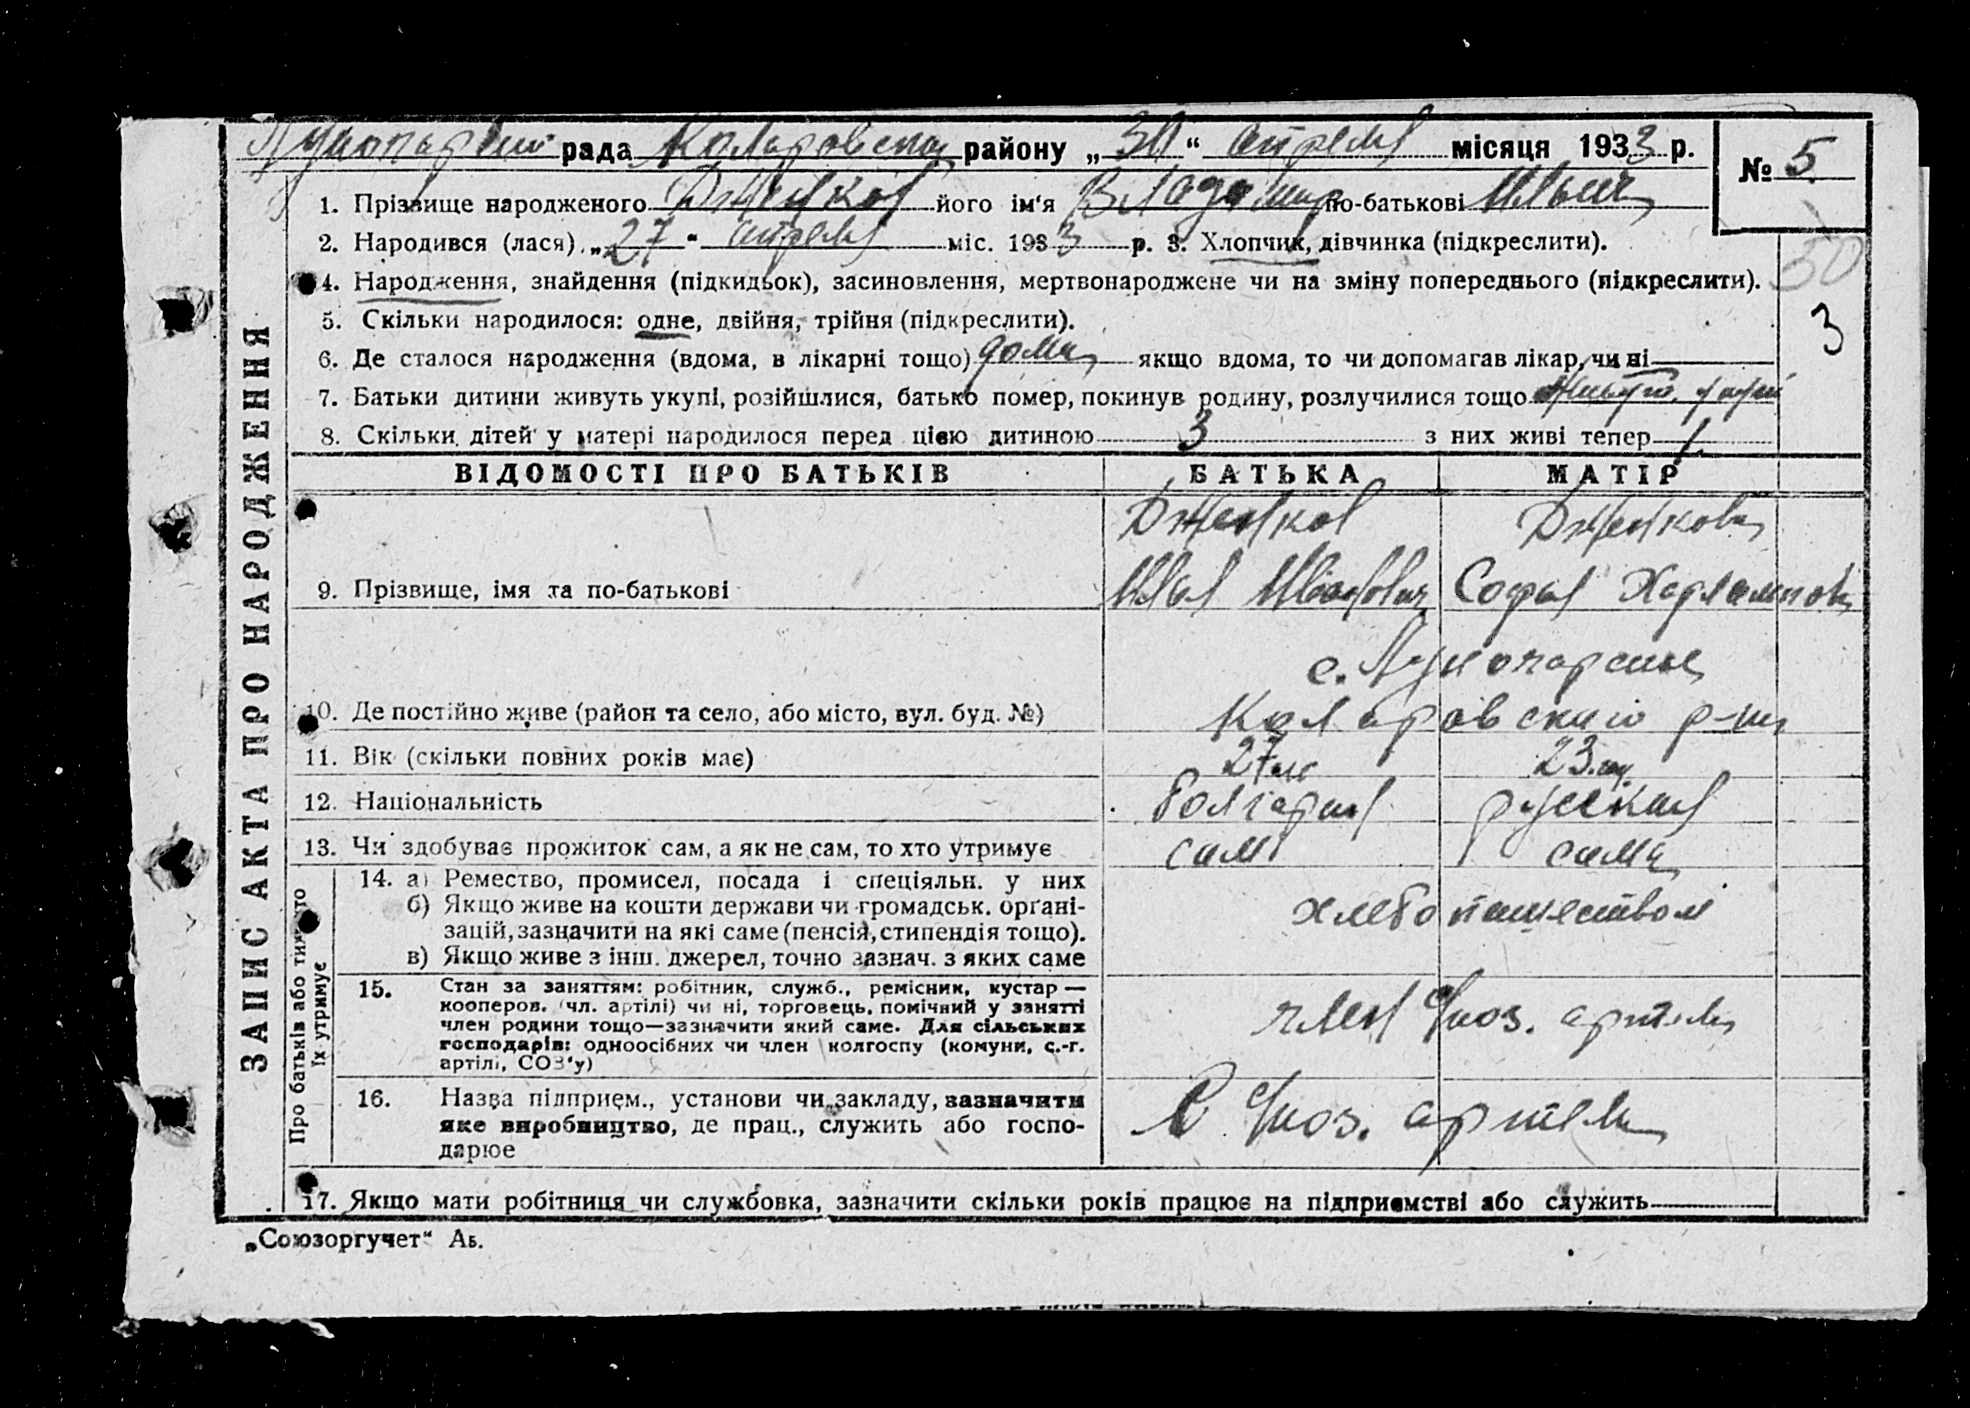 рада Коларовского району „30“ апреля місяця 1933 р.
№ 5
1. Прізвище народженого Дженков його ім'я Владимир по-батькові Ильич
2. Народився (лася) „27“ апреля міс. 1933 р. 3. Хлопчик, дівчинка (підкреслити).
50
4. Народження, знайдення (підкидьок), засиновлення, мертвонароджене чи на зміну попереднього (підкреслити).
5. Скільки народилося: одне, двійня, трійня (підкреслити).
3
6. Де сталося народження (вдома, в лікарні тощо) дома якщо вдома, то чи допомагав лікар, чи ні
7. Батьки дитини живуть укупі, розійшлися, батько помер, покинув родину, розлучилися тощо живуть
8. Скільки дітей у матері народилося перед цією дитиною 3 з них живі тепер 1
ЗАПИС АКТА ПРО НАРОДЖЕННЯ
ВІДОМОСТІ ПРО БАТЬКІВ БАТЬКА МАТІР
Дженков Дженкова
9. Прізвище, імя та по-батькові Илья Иванович Софья Харлампов
с. Луначарское
10. Де постійно живе (район та село, або місто, вул. буд. №) Коларовского р-на
11. Вік (скільки повних років має) 27 лет 23 г.
12. Національність болгарин русская
13. Чи здобуває прожиток сам, а як не сам, то хто утримує сам сама
Про батьків або тих, хто їх утримує
14. а) Ремество, промисел, посада і спеціяльн. у них
б) Якщо живе на кошти держави чи громадськ. органі-
зацій, зазначити на які саме (пенсія, стипендія тощо).
хлебопашеством
в) Якщо живе з інш. джерел, точно зазнач. з яких саме
15. Стан за заняттям: робітник, служб., ремісник, кустар —
кооперов. (чл. артілі) чи ні, торговець, помічний у занятті
член родини тощо—зазначити який саме. Для сільських
господарів: одноосібних чи член колгоспу (комуни, с.-г.
артілі, СОЗ'у)
член с/хоз. артели
16. Назва підприєм., установи чи закладу, зазначити
яке виробництво, де прац., служить або госпо-
дарює
В с/хоз. артели
17. Якщо мати робітниця чи службовка, зазначити скільки років працює на підприємстві або служить
„Союзоргучет“ Аь.